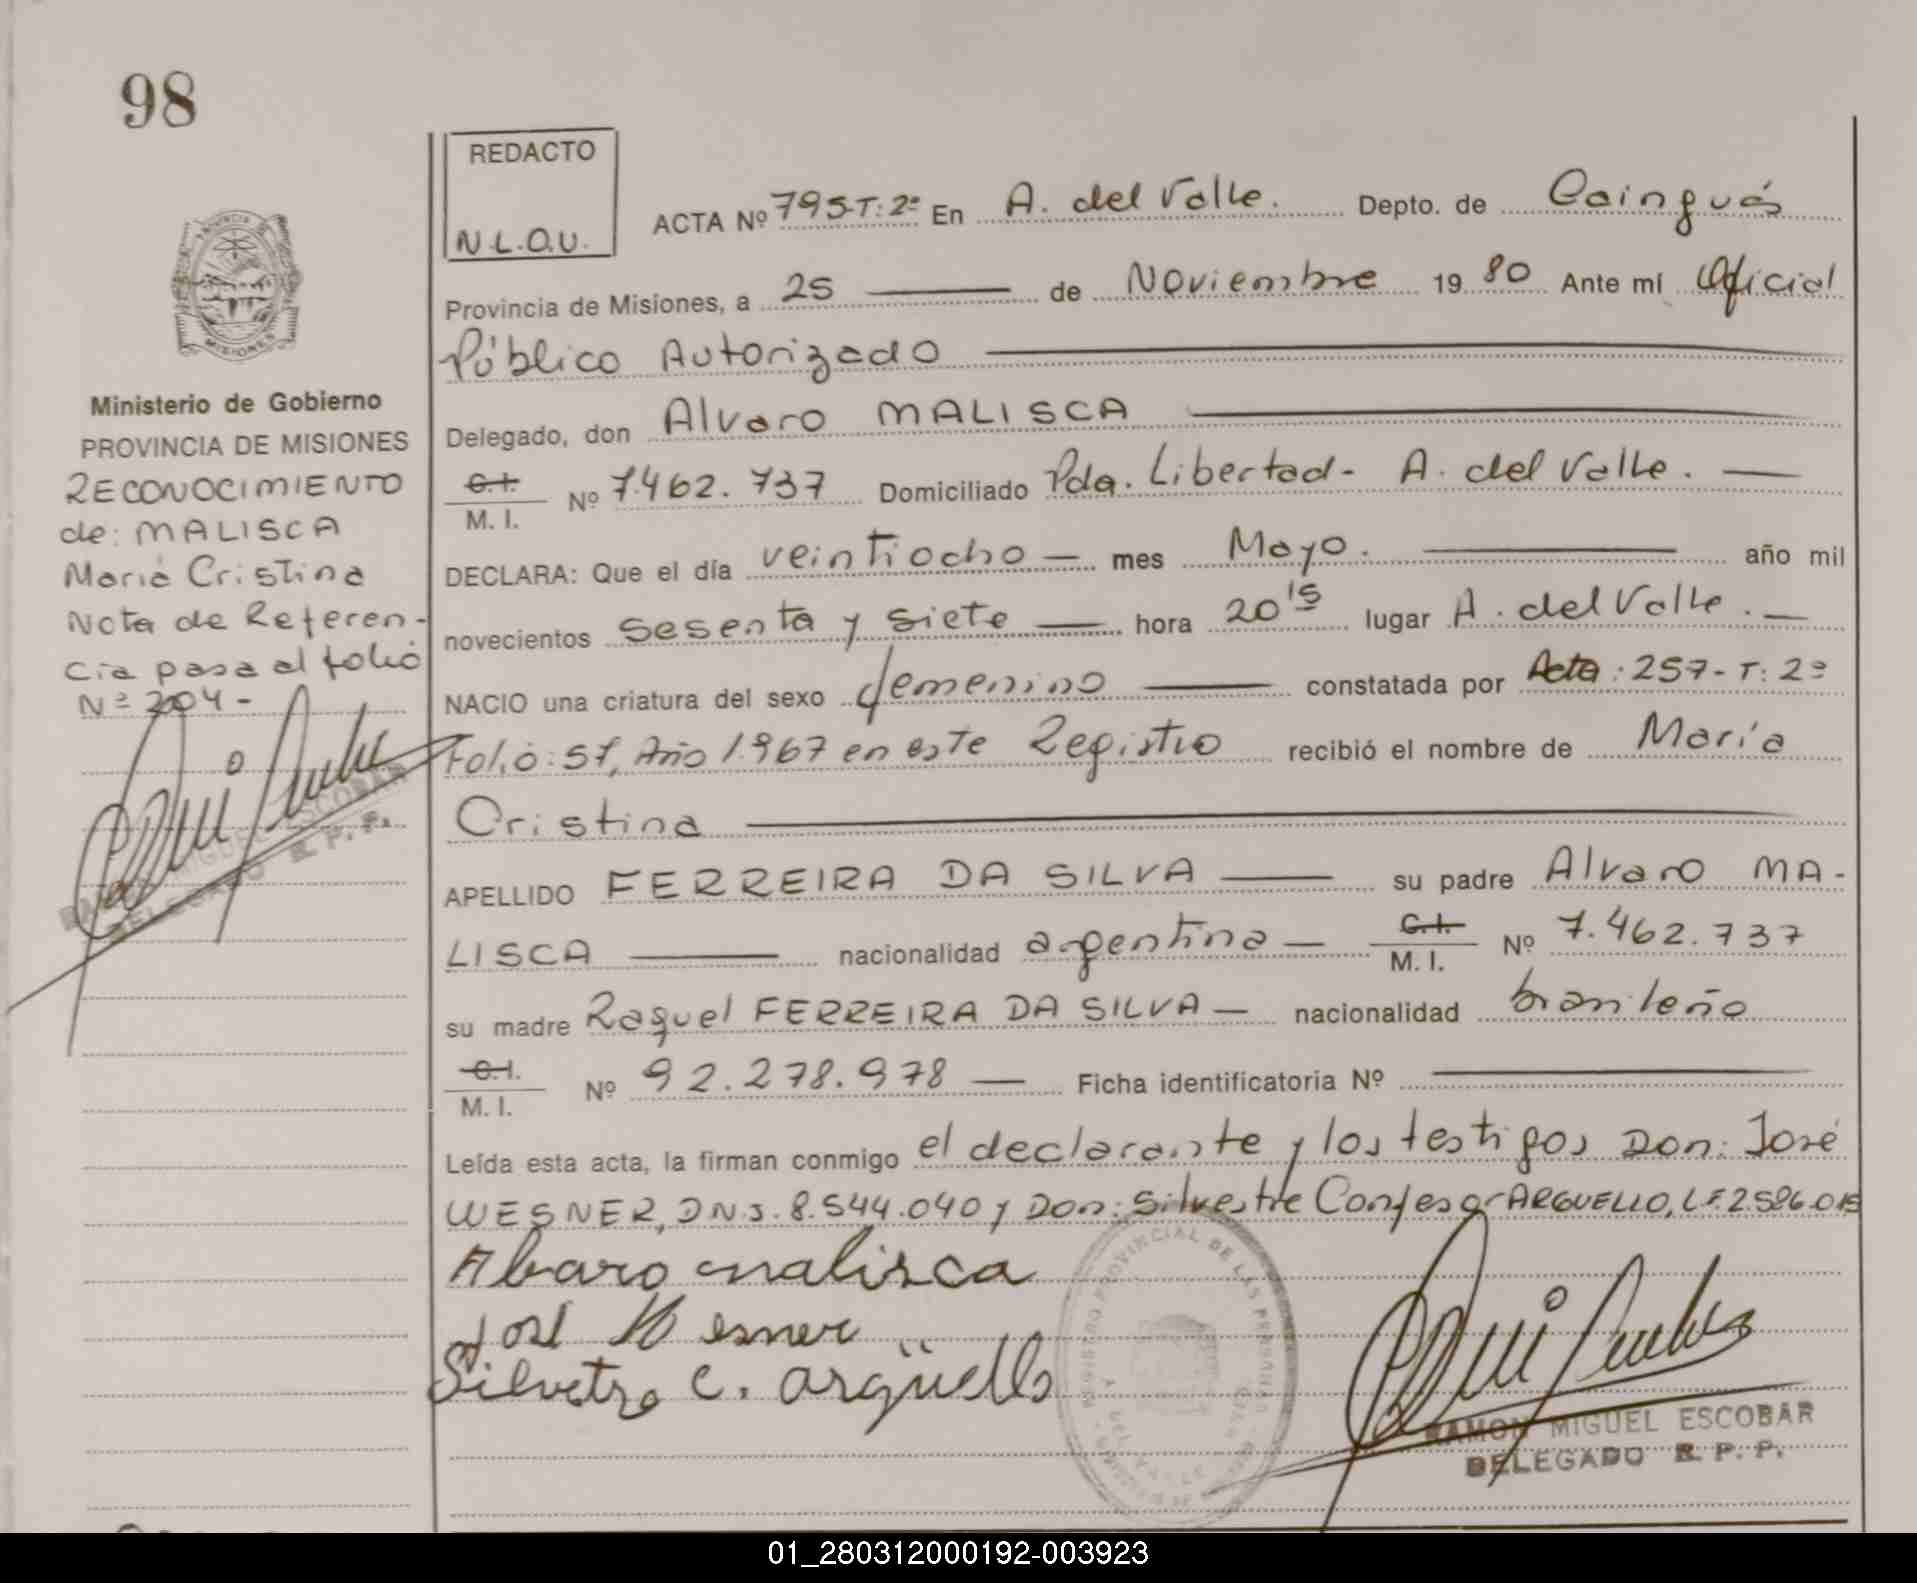 98
REDACTO
N.L.O.U.
ACTA Nº 795-T:2º En A. del Valle. Depto. de Cainguás
Provincia de Misiones, a 25 de Noviembre 1980 Ante mí Oficial
Público Autorizado
Delegado, don Alvaro MALISCA
C.I.
M. I. Nº 7.462.737 Domiciliado Pda. Libertad - A. del Valle.
DECLARA: Que el día veintiocho mes Mayo. año mil
novecientos sesenta y siete hora 20'15 lugar A. del Valle.
NACIO una criatura del sexo femenino constatada por Acta: 257-T: 2º
Folio: 57, Año 1.967 en este Registro recibió el nombre de María
Cristina
APELLIDO FERREIRA DA SILVA su padre Alvaro MA-
LISCA nacionalidad argentina C.I.
M. I. Nº 7.462.737
su madre Raquel FERREIRA DA SILVA nacionalidad brasileña
C.I.
M. I. Nº 92.278.978 Ficha identificatoria Nº
Leída esta acta, la firman conmigo el declarante y los testigos Don: José
WESNER, D.N.I. 8.544.040 y Don: Silvestre Confesor ARGUELLO, L.E. 2.586.015
Alvaro malisca
José Wesner
Silvetre C. argüello
RAMON MIGUEL ESCOBAR
DELEGADO R. P. P.
PROVINCIA DE
MISIONES
Ministerio de Gobierno
PROVINCIA DE MISIONES
RECONOCIMIENTO
de: MALISCA
María Cristina
Nota de Referen-
cia pasa al folio
Nº 204-
MIGUEL ESCOBAR
DELEGADO R. P. P.
REGISTRO PROVINCIAL DE LAS PERSONAS
01_280312000192-003923